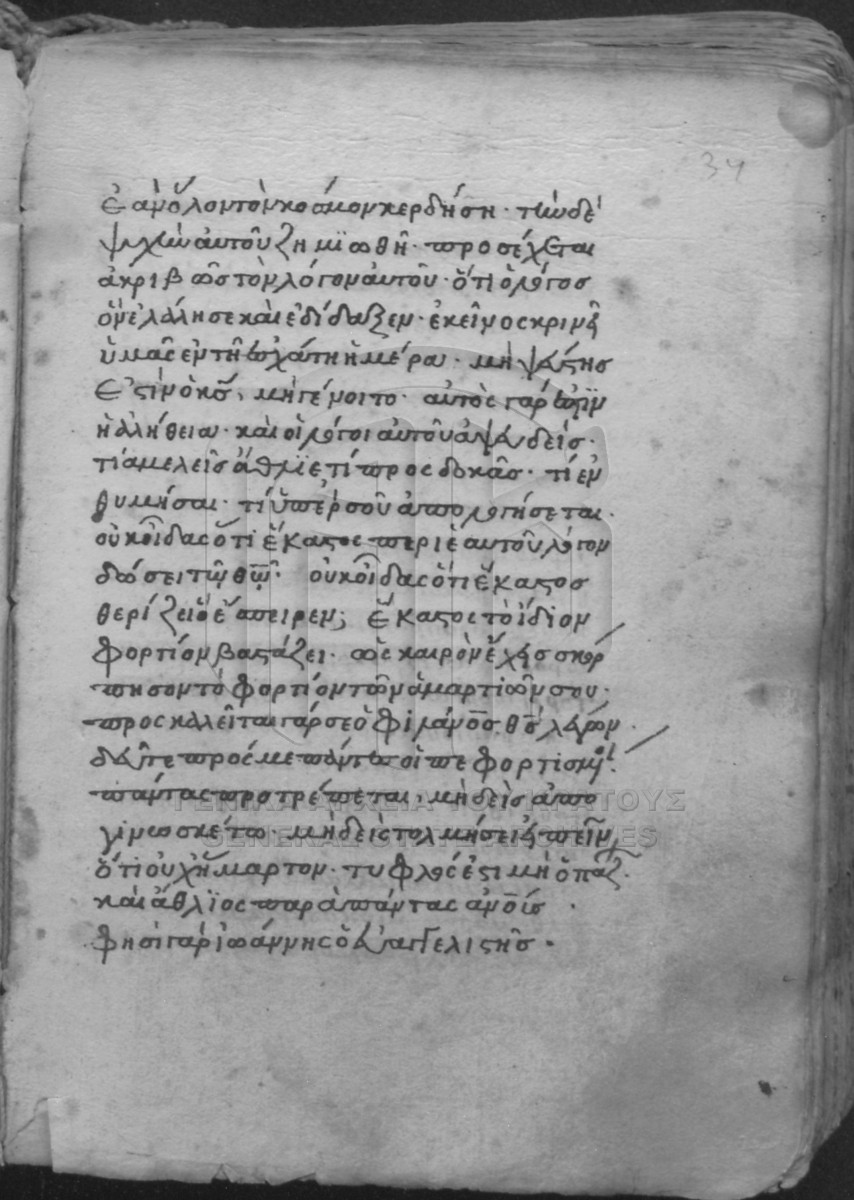 34
ἐὰν ὅλον τὸν κόσμον κερδήση· τὴν δὲ
ψυχὴν αὐτοῦ ζημϊωθῆ· προσέχεται
ἀκριβῶς τὸν λόγον αὐτοῦ· ὅτι ὁ λόγος
ὃν ἐλάλησε καὶ ἐδίδαξεν· ἐκεῖνος κρινεῖ
ὑμᾶς ἐν τῆ ἐσχάτη ἡμέρα· μὴ ψεύστης
ἐστὶν ὁ κς̄, μὴ γένοιτο· αὐτὸς γάρ ἐστϊν
ἡ ἀλήθεια· καὶ οἱ λόγοι αὐτοῦ ἀψευδείς·
τί ἀμελεῖς ἄθλϊε τί προσδοκᾶς· τί ἐν
θυμῆσαι· τί ὑπέρ σοῦ ἀπολογήσεται·
οὐκ οἶδας ὅτι ἕκαστος περὶ ἑαυτοῦ λόγον
δώσει τῶ θῶ̄· οὐκ οἶδας ὅτι ἕκαστος
θερίζει ὃ ἔσπειρεν; ἕκαστος τὸ ἴδϊον
φορτίον βαστάζει· ὡς καιρὸν ἔχεις σκόρ
πησον τὸ φορτίον τῶν ἁμαρτϊῶν σου·
προσκαλεῖται γάρ σε ὁ φιλάνο̄ς θς̄ λέγων·
δεῦτε προς με πάντες οἱ πεφορτισμένοι·
πάντας προτρέπεται, μηδεὶς ἀπο
γινωσκέτω· μηδεὶς τολμήσει εἰπεῖν,
ὅτι οὐχ ἥμαρτον· τυφλός ἐστι μὴ ὁ παῖζ
καὶ ἄθλϊος παρὰ πάντας ἀνο̄ίς·
φησὶ γὰρ ἰωάννης ὁ εὐαγγελιστής·
ΓΕΝΙΚΑ ΑΡΧΕΙΑ ΤΟΥ ΚΡΑΤΟΥΣ
GENERAL STATE ARCHIVES